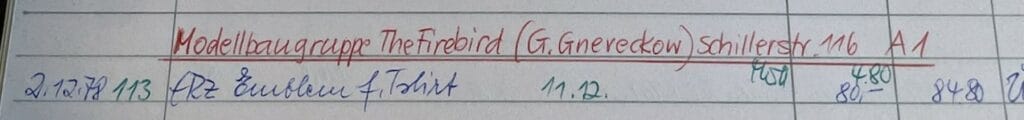 Modellbaugruppe The Firebird (G. Gnereckow) Schillerstr. 116 A1
2.12.78 113 Emblem f. T-Shirt 11.12. 4.80 80,- 84 80